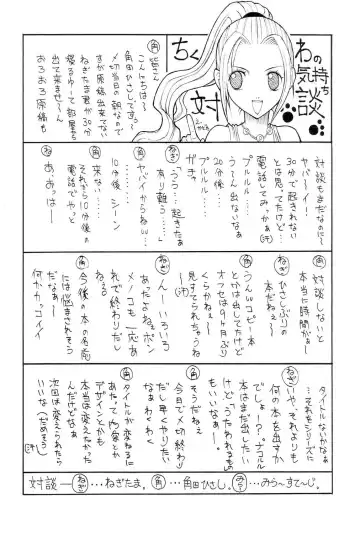 ちくわの気持ち
対談
角 皆さん
こんにちは〜
角田ひさしです。
〆切当日の朝なので
すが原稿出来てない
ねぎたま君が30分
寝るゆーて部屋から
出て来ませーん
おろおろ原稿も
対談もまだなのに〜
30分で起きれない
とは思ってたけど…
ヤバーイー
電話してみっかぁ(汗)
プルルルル…
う〜ん出ないなぁ
20分後
プルルル…
ガチャ
ねぎ「うう…起きたぁ
有り難う……」
角 ヤバイからねw…
10分後 シーン
角 来ない…
それから10分後の
電話でやっと
ねぎ あ、おっはー
角 対談しないと
本当に時間が〜
ねぎ ひさしぶりの
本だねぇ〜
角 うんwコピー本
とかは出してたけど
オフセは9ヶ月ぶり
くらかねぇ〜
見すてられちゃうね
〜(汗)
ねぎ んーいろいろ
あったよねぇ、ボン
メノコも一応あ
れで終わりだし
ねぇ。
角 今後の本の名前
には悩まされそう
何がカッコイイ
タイトルないかなぁ
…それもシリーズに
ねぎ いや、それよりも
何の本を出すか
でしょー?ナコルル
本はまだ出したい
けど、うたわれるもの
もいいなぁー。
角 もうだねぇ
今日で〆切終わり
だし早くやりたい
なぁわくわく
角 タイトルが変わるに
あたって内容とか
デザインとかも
本当は変えたかった
んだけどなぁ
次回は変えられたら
いいな(だめそう)
(汗)
対談― ねぎ…ねぎたま。 角…角田ひさし。 みら…みら〜すて〜じ。